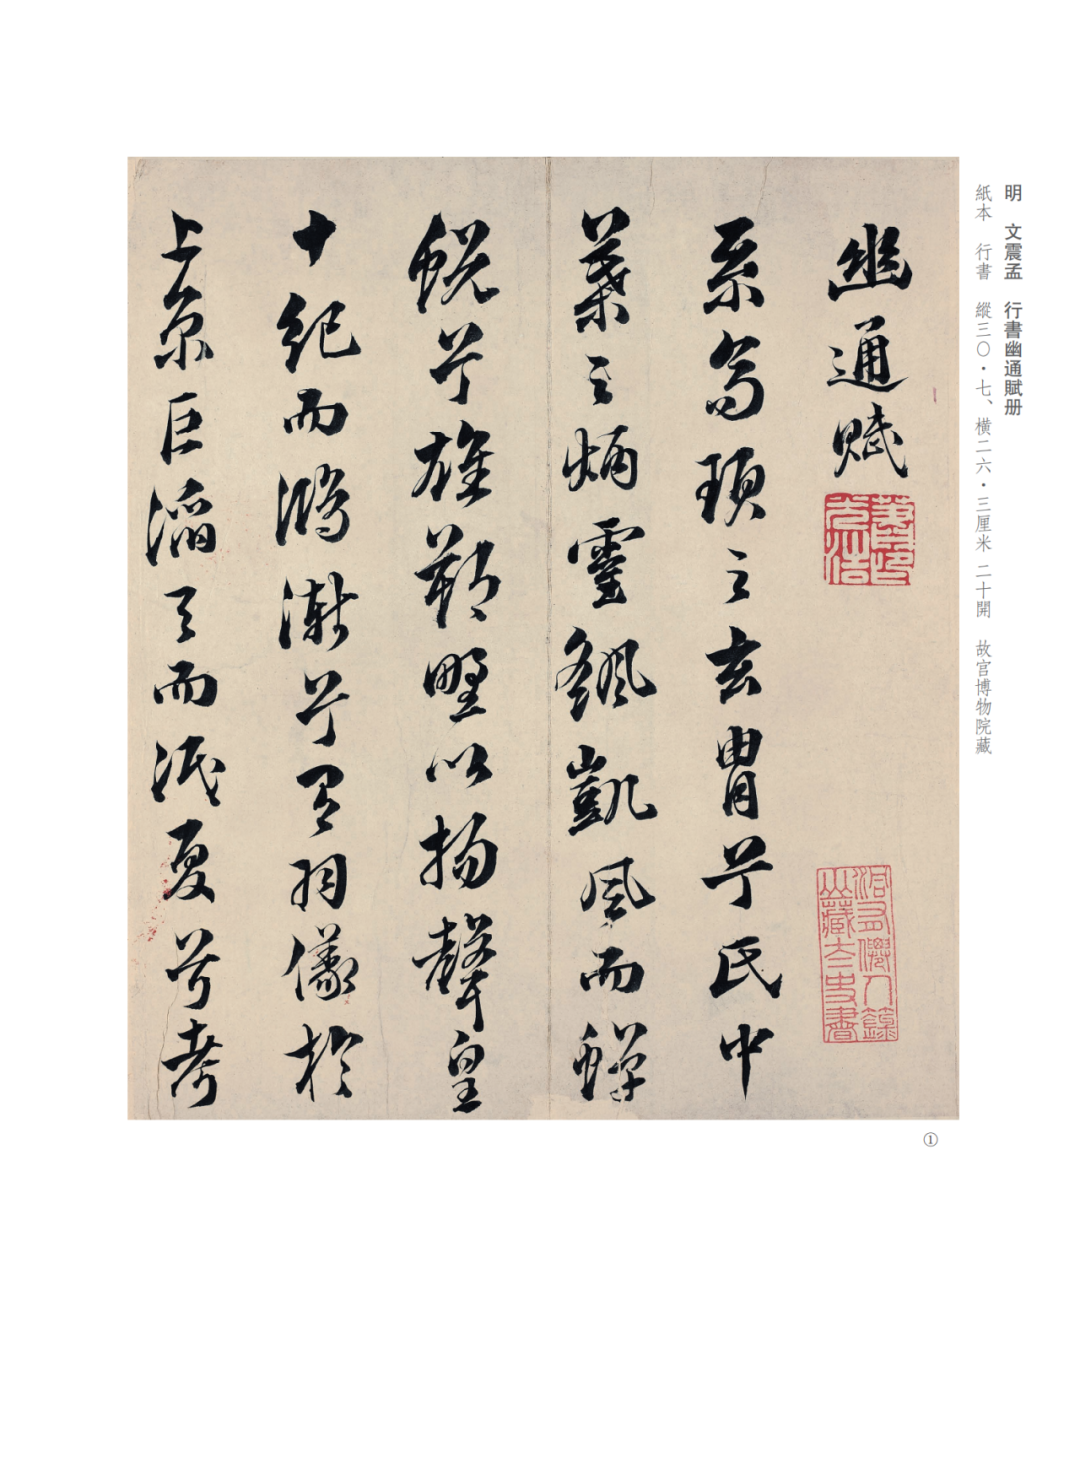 明 文震孟 行書幽通賦册
紙本 行書 縱三〇·七、橫二六·三厘米 二十開 故宫博物院藏
幽通賦
系高頊之玄冑兮氏中
葉之炳靈颻凱風而蟬
蛻兮雄朔野以揚聲皇
十紀而鴻漸兮有羽儀於
上京巨滔天而泯夏兮考
①